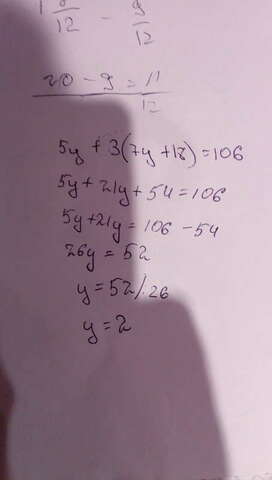 8/12 - 9/12
20 - 9 = 11/12
5y + 3(7y + 18) = 106
5y + 21y + 54 = 106
5y + 21y = 106 - 54
26y = 52
y = 52/.26
y = 2